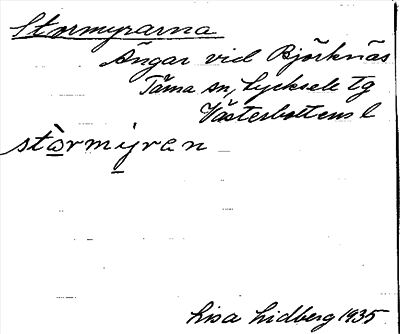 Stormyrarna
Ängar vid Björknäs
Tärna sn, Lycksele tg
Västerbottens l
stòrmyran
Lisa Lidberg 1935